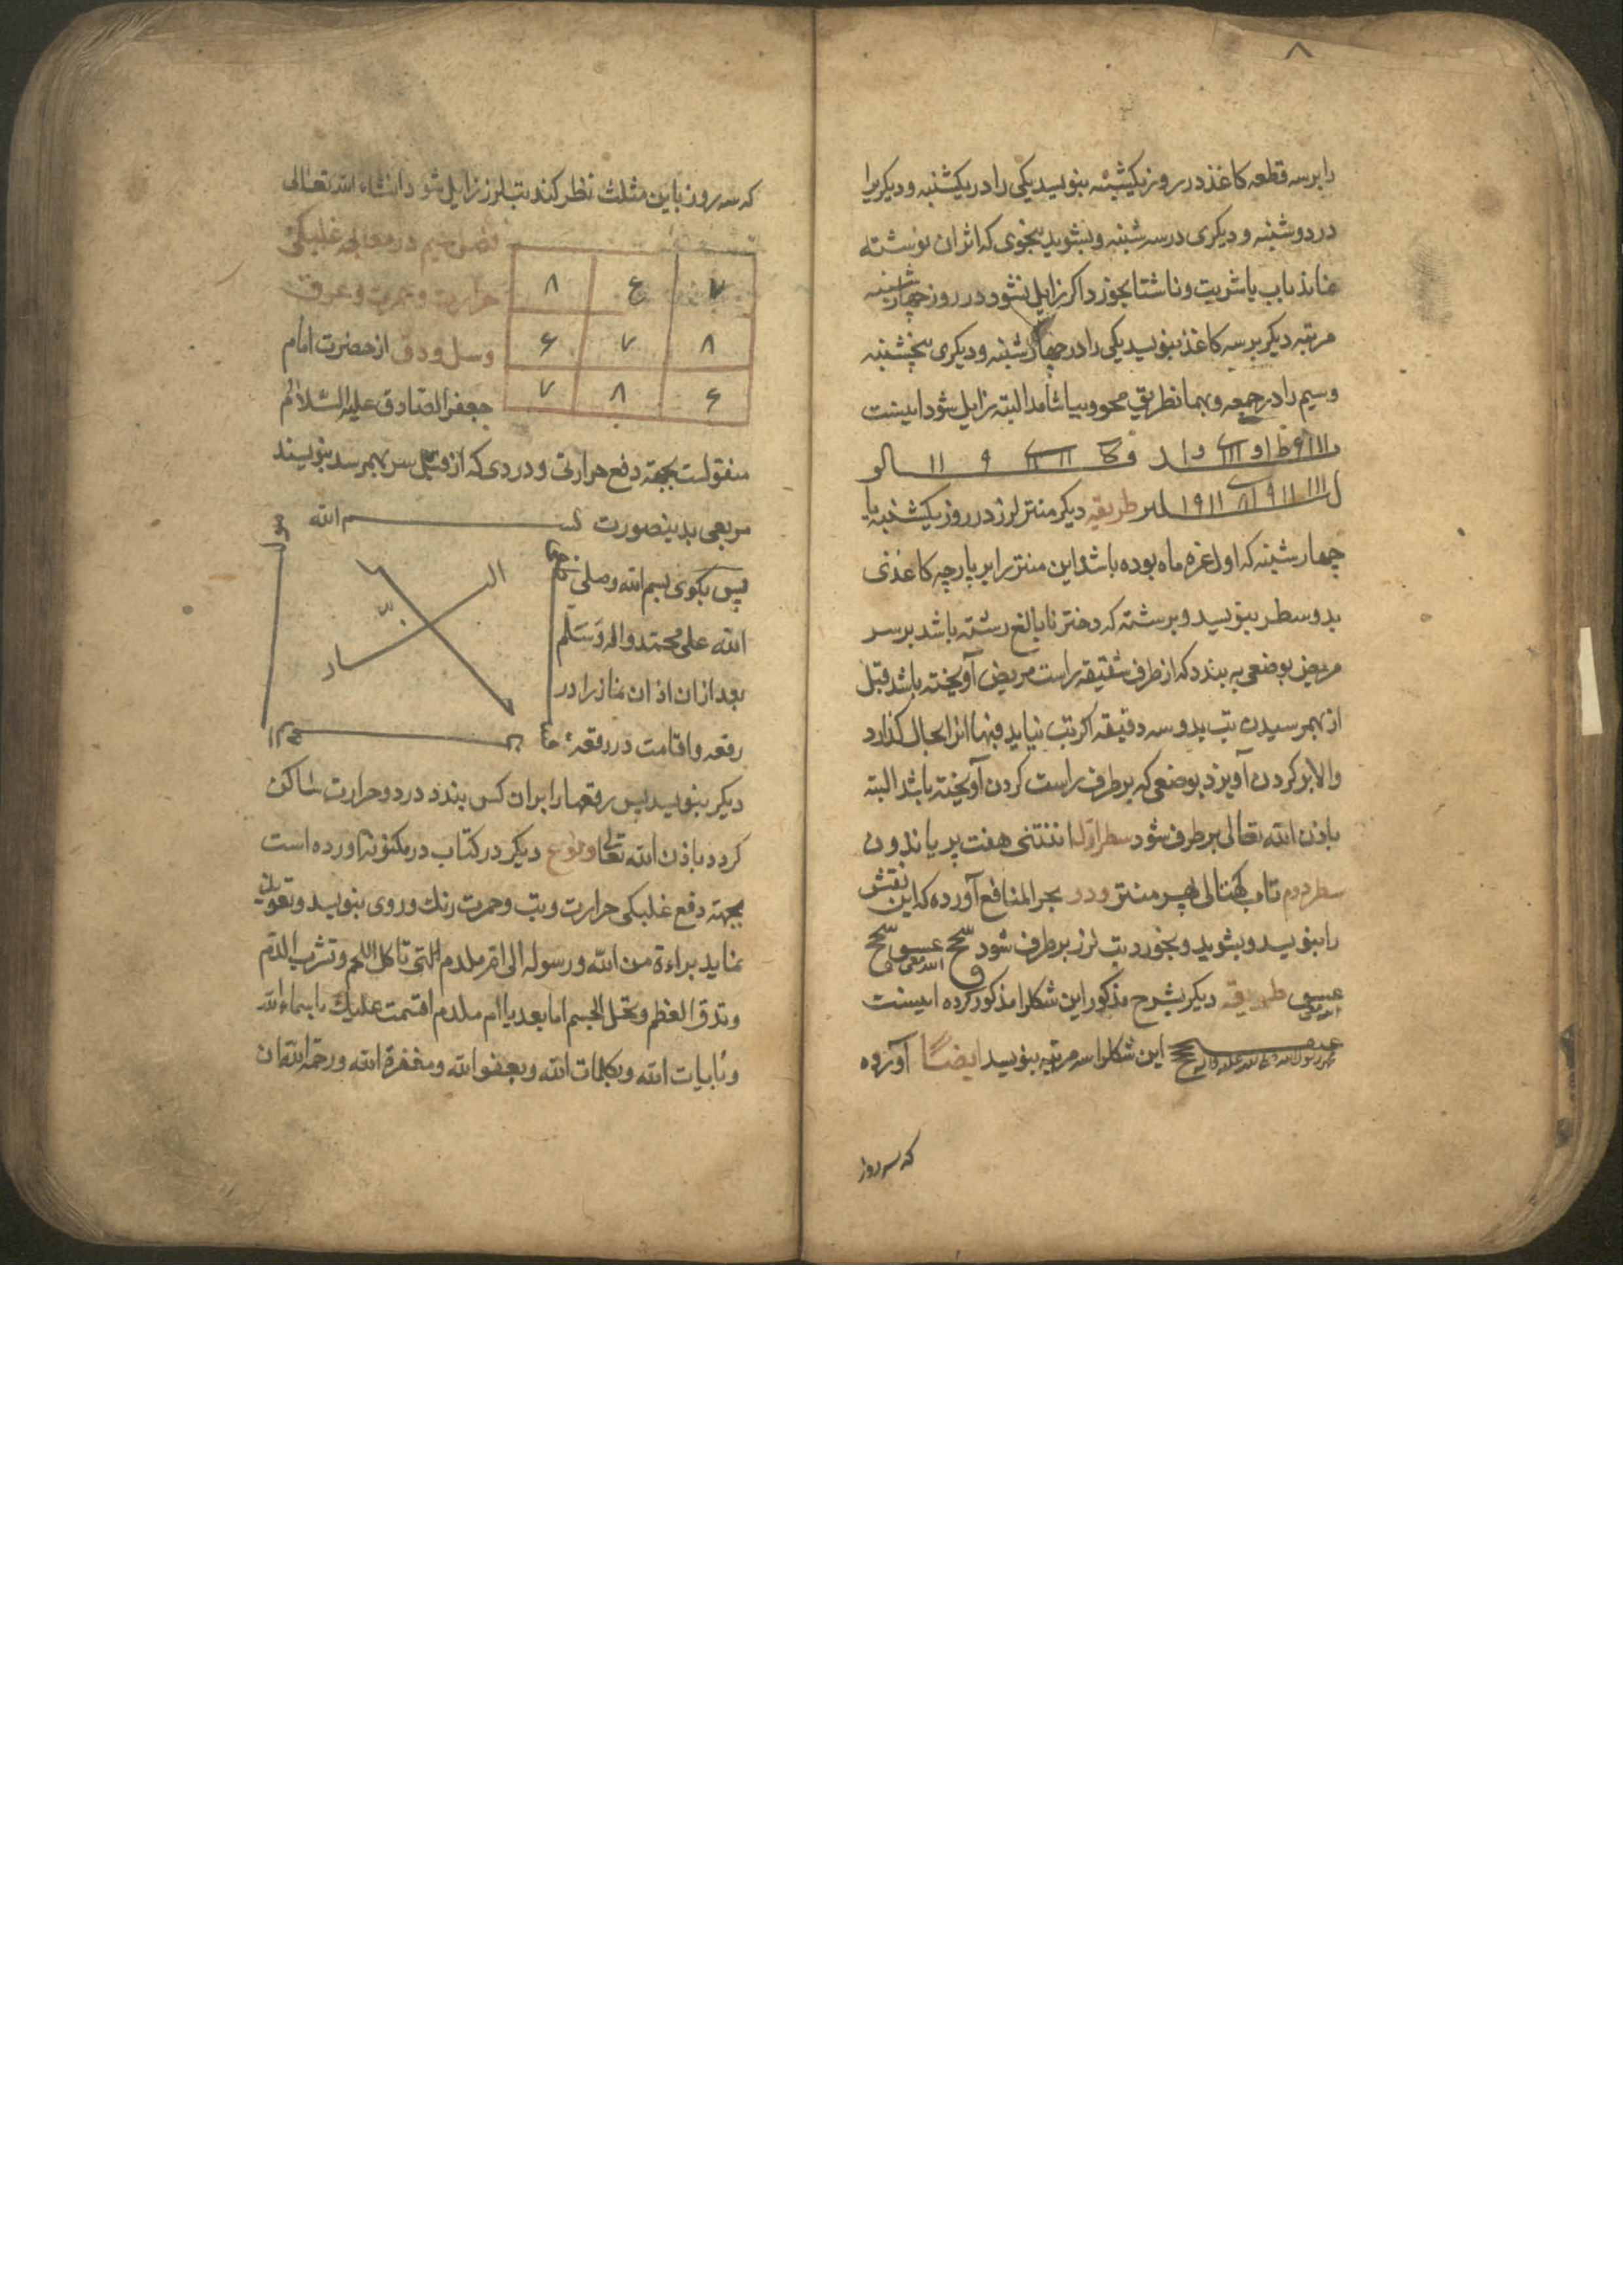 ۸
را بر سه قطعه کاغذ در روز یکشنبه بنویسد یکی را در یکشنبه و دیگریرا
در دوشنبه و دیگری در سه شنبه و بشوید بنحوی که اثر ان نوشته
نماند باب یا شربت و ناشتا بخورد اکر زایل نشود در روز چهار شنبه
مرتبه دیکر بر سه کاغذ بنویسد یکی را در چهار شنبه و دیکری پنجشنبه
وسیم را در جمعه و بهمان طریق محو و بیاشامد البته زایل شود اینست
طریقه دیکر منتر لرز در روز یکشنبه یا
چهار شنبه که اول غره ماه بوده باشد این منتر را بر پارچه کاغذی
بدو سطر بنویسد و برشته که دختر نابالغ رشته باشد بر سر
مریض بوضعی به بندد که از طرف شقیقه راست مریض آویخته باشد قبل
از بهمرسیدن تب بدو سه دقیقه اکر تب نیاید فبها انرا بحال کذارد
والا بر کردن آویزد بوضعی که بر طرف راست کردن آویخته باشد البته
باذن الله تعالی بر طرف شود سطر اول انتنی هفت پر یاندون
سطر دوم تاب کهتالی پهر منتر و در بحر المنافع آورده که این نقش
را بنویسد و بشوید و بخورد تب لرز بر طرف شود
طریقه دیکر بشرح مذکور این شکلرا مذکور کرده اینست
این شکلرا سه مرتبه بنویسد ایضاً آورده
که سه روز
که سه روز باین مثلث نظر کند تب لرز زایل شود انشاء الله تعالی
فصل پنجم در معالجه غلبکی
۷ ۶ ۸
حرارت و حمرت و عرق
۸ ۷ ۶
وسل ودق از حضرت امام
۶ ۸ ۷
جعفر الصادق علیه السلام
منقولست بجهة دفع حرارتی و دردی که از قبل سر بهمرسد بنویسند
مربعی بدینصورت بسم الله
پس بکوی بسم الله وصلی
الله علی محمد واله وسلم
بعد از ان اذان نماز را در
رقعه و اقامت در رقعه
دیکر بنویسد پس رقعها را بر ان کس بندد درد و حرارت ساکن
کردد باذن الله تعالی و نوع دیکر در کتاب در مکنونه اورده است
بجهة دفع غلبکی حرارت و تب و حمرت رنك و روی بنویسد و تعویذ
نماید براءة من الله و رسوله الی ام ملدم التی تاکل اللحم و تشرب الدم
وتدق العظم و تنحل الجسم اما بعد یا ام ملدم اقسمت علیك باسماء الله
وبایات الله وبکلمات الله وبعفو الله ومغفرة الله ورحمة الله ان